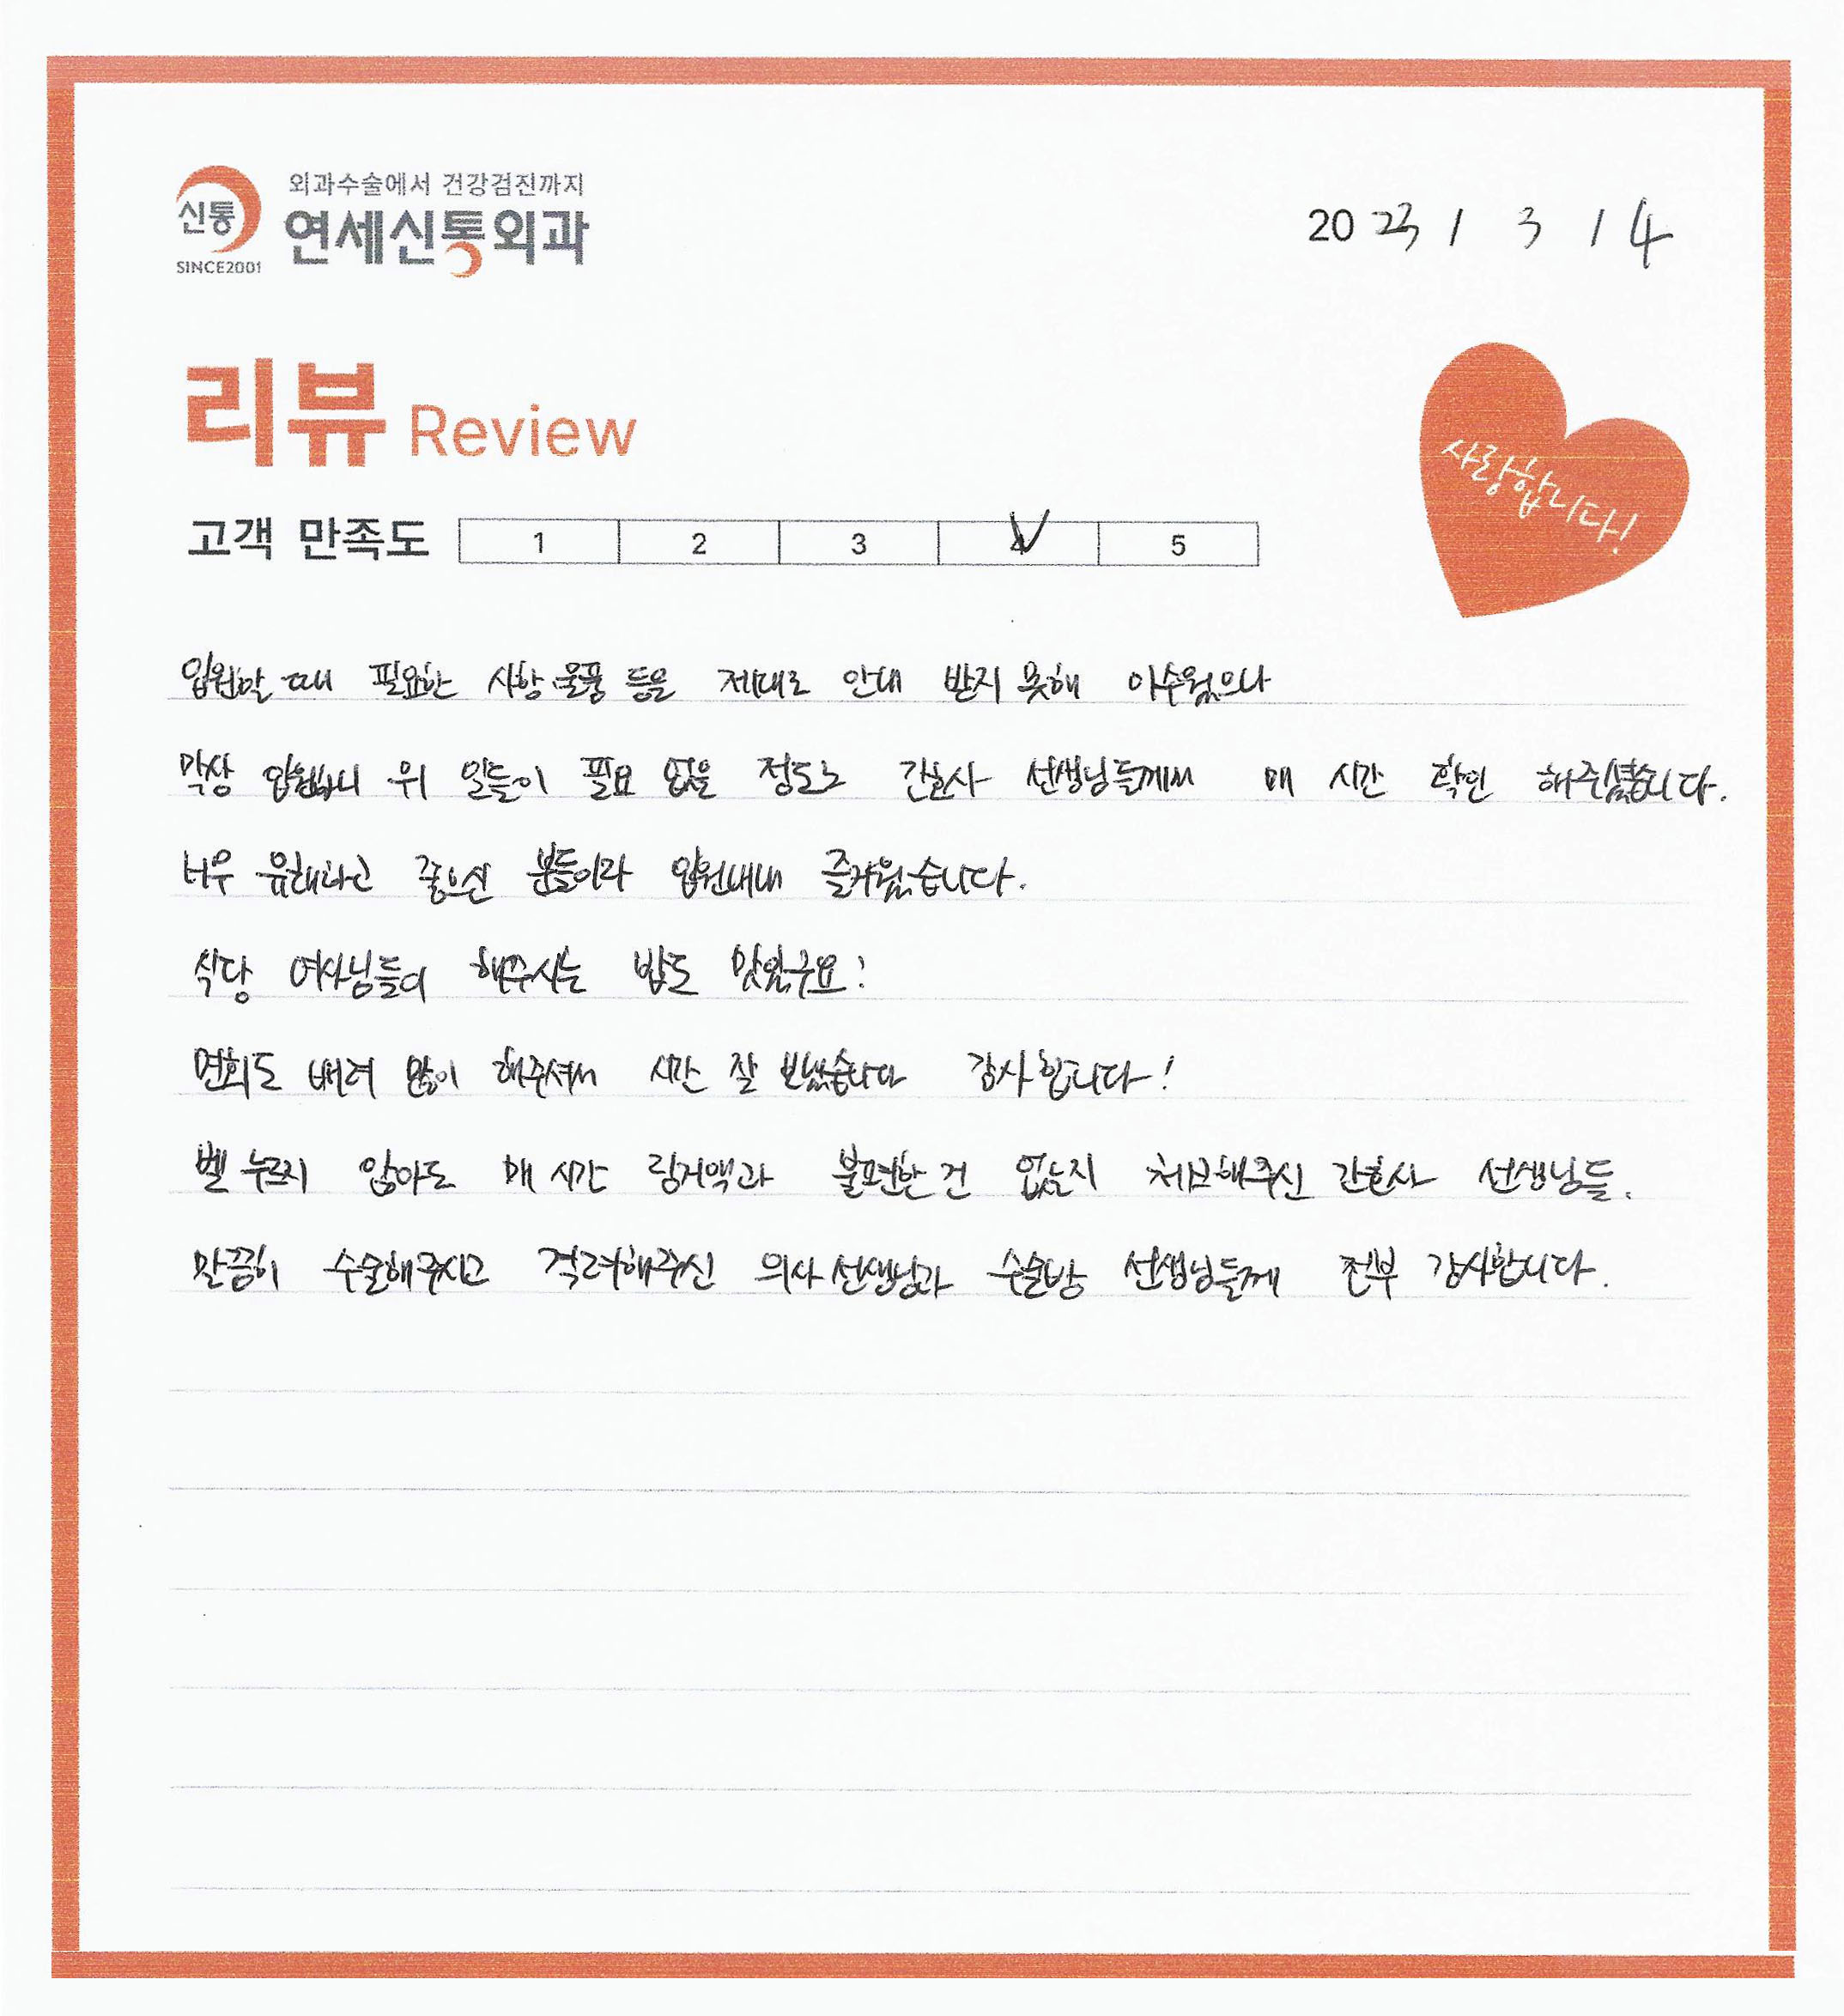 신통
SINCE2001
외과수술에서 건강검진까지
연세신통외과
2023 / 3 / 4
리뷰 Review
사랑합니다!
고객 만족도 1 2 3 4 5
입원할 때 필요한 사항 물품 등을 제대로 안내 받지 못해 아쉬웠으나
막상 입원하니 위 일들이 필요 없을 정도로 간호사 선생님들께서 매 시간 확인 해주셨습니다.
너무 유쾌하고 좋으신 분들이라 입원내내 즐거웠습니다.
식당 여사님들이 해주시는 밥도 맛있구요!
면회도 배려 많이 해주셔서 시간 잘 보냈습니다 감사합니다!
벨 누르지 않아도 매 시간 링거액과 불편한 건 없는지 체크해주신 간호사 선생님들.
말끔히 수술해주시고 격려해주신 의사 선생님과 수술방 선생님들께 전부 감사합니다.